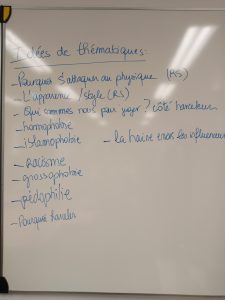 Idées de thématiques:
- Pourquoi s'attaquer au physique (RS)
- L'apparence / style (RS)
- Qui sommes nous pour juger ? côté harceleur
- homophobie
- islamophobie
- la haine envers les influenceurs
- Racisme
- grossophobie
- pédophilie
- Pourquoi harceler